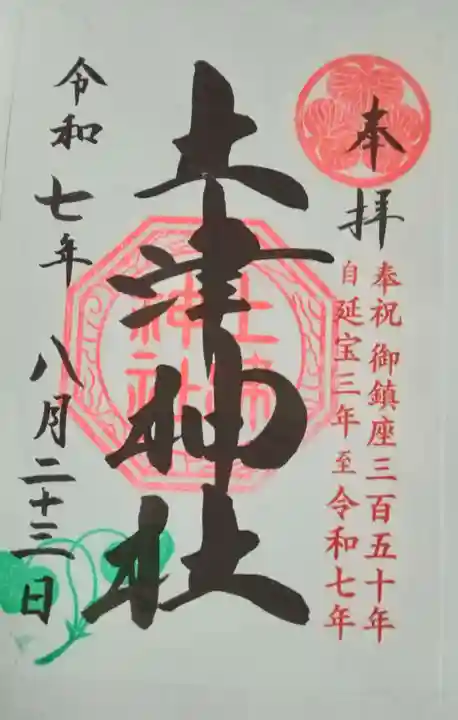 奉拝
奉祝 御鎮座三百五十年
自延宝三年至令和七年
土津神社
土津
神社
令和七年 八月二十三日